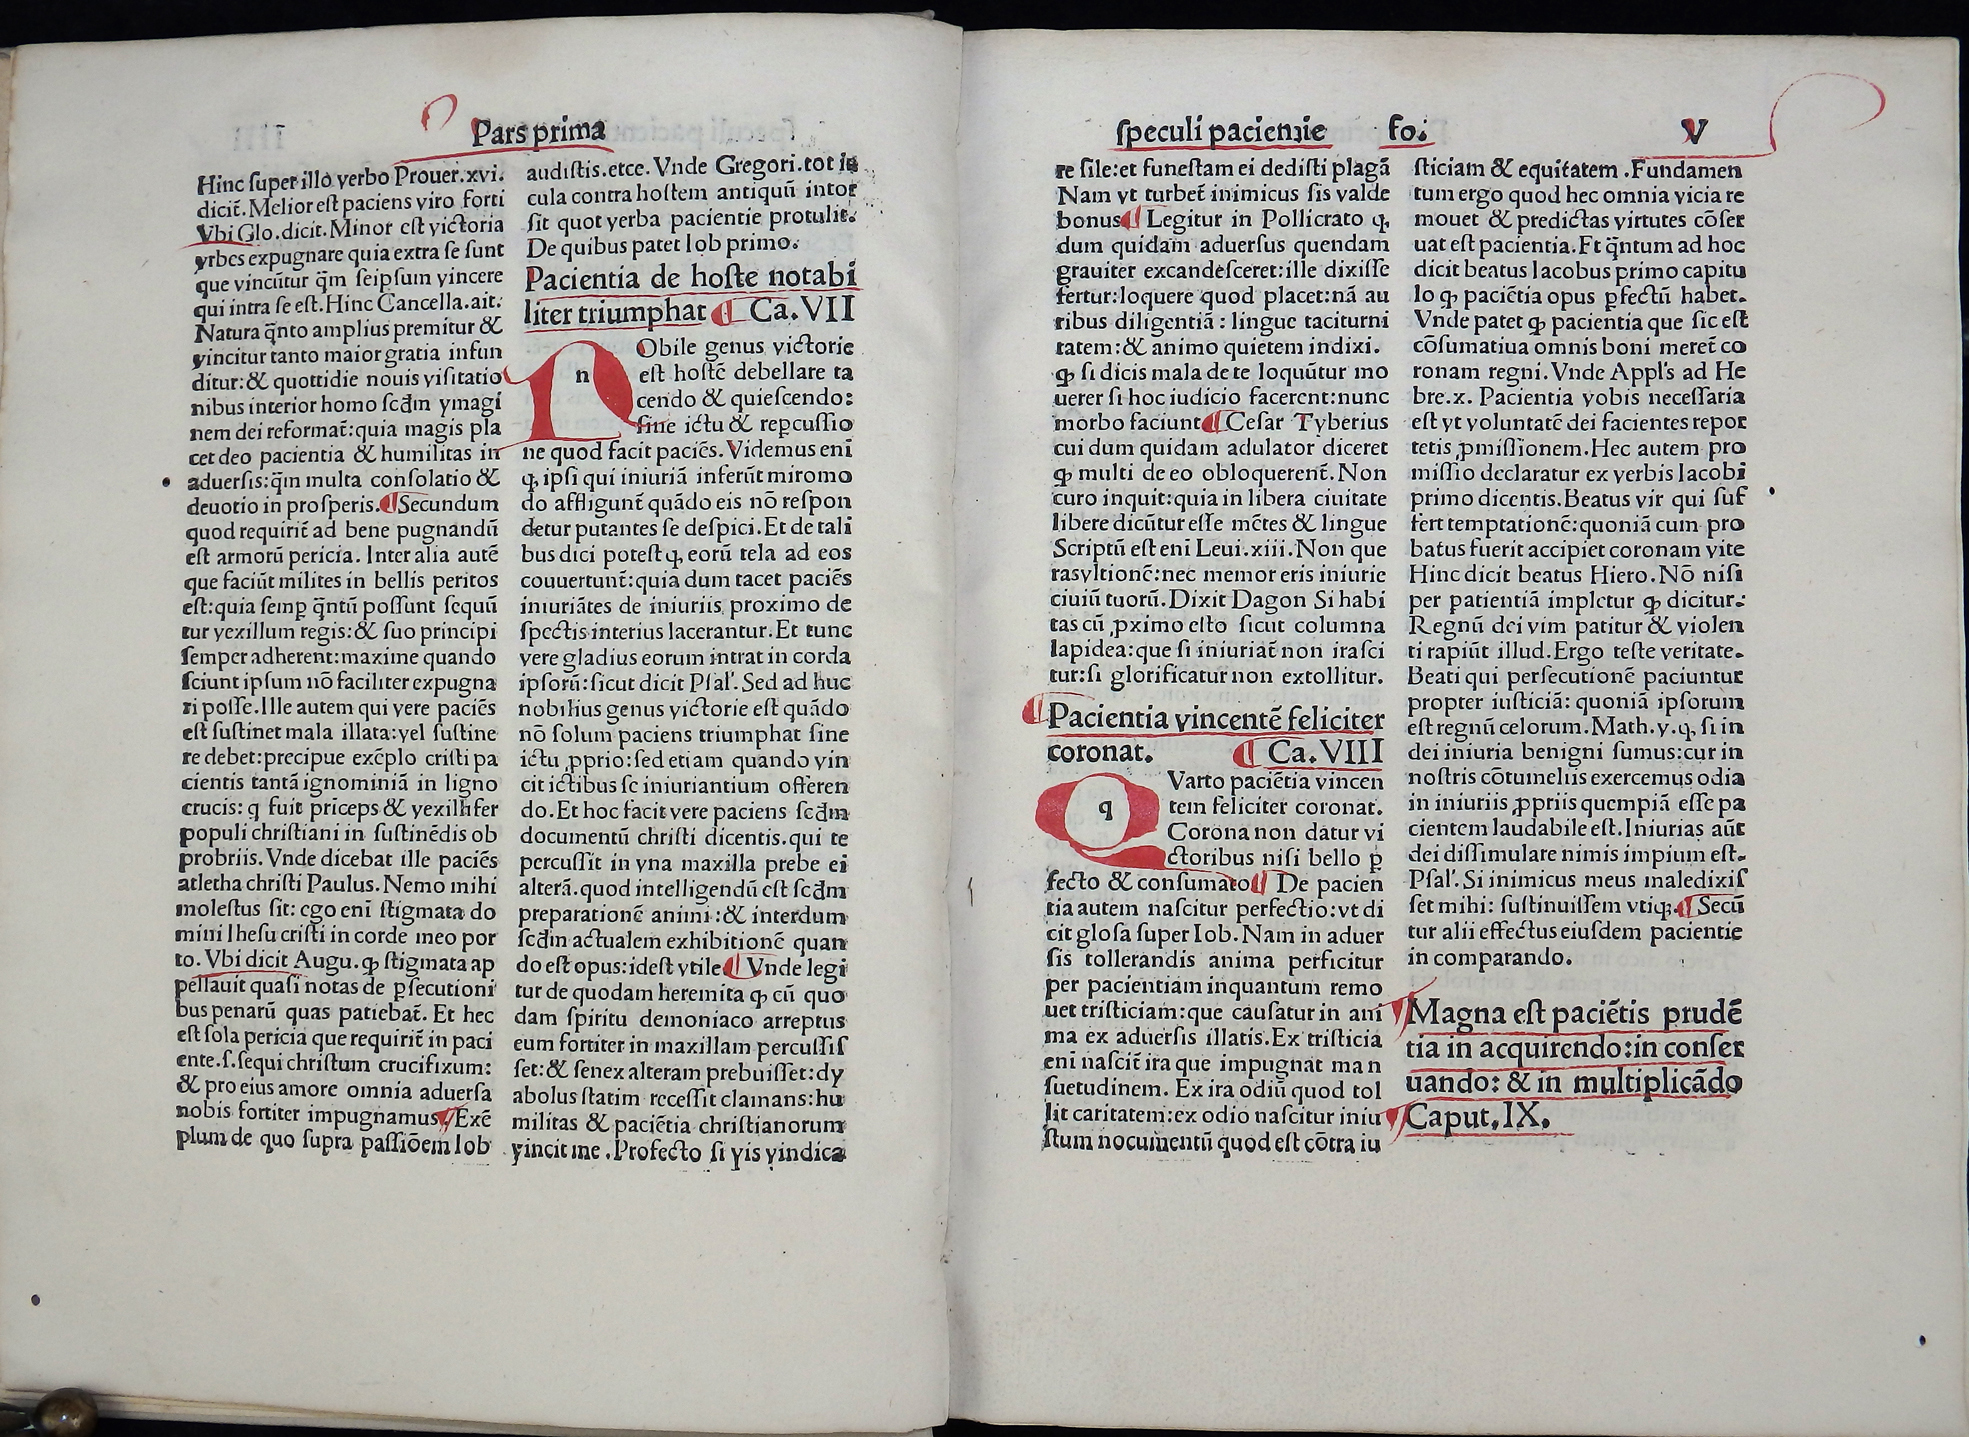 Pars prima
Hinc ſuper illo verbo Prouer.xvi.
dicit̄. Melior eſt paciens viro forti
Vbi Glo.dicit. Minor eſt victoria
vrbes expugnare quia extra ſe ſunt
que vincūtur q̄m ſeipſum vincere
qui intra ſe eſt. Hinc Cancella.ait.
Natura q̄nto amplius premitur &
vincitur tanto maior gratia infun
ditur: & quottidie nouis viſitatio
nibus interior homo ſcd̄m ymagi
nem dei reformat̄: quia magis pla
cet deo pacientia & humilitas in
aduerſis: q̄m multa conſolatio &
deuotio in proſperis. ¶ Secundum
quod requirit̄ ad bene pugnandū
eſt armorū pericia. Inter alia autē
que faciūt milites in bellis peritos
eſt: quia ſemꝑ q̄ntū poſſunt ſequū
tur vexillum regis: & ſuo principi
ſemper adherent: maxime quando
ſciunt ipſum nō faciliter expugna
ri poſſe. Ille autem qui vere paciēs
eſt ſuſtinet mala illata: vel ſuſtine
re debet: precipue exēplo criſti pa
cientis tantā ignominiā in ligno
crucis: q fuit prīceps & vexillifer
populi chriſtiani in ſuſtinēdis ob
probriis. Vnde dicebat ille paciēs
atletha chriſti Paulus. Nemo mihi
moleſtus ſit: ego enī ſtigmata do
mini Iheſu criſti in corde meo por
to. Vbi dicit Augu. ꝙ ſtigmata ap
pellauit quaſi notas de ꝑſecutioni
bus penarū quas patiebat̄. Et hec
eſt ſola pericia que requirit̄ in paci
ente.ſ.ſequi chriſtum crucifixum:
& pro eius amore omnia aduerſa
nobis fortiter impugnamus. ¶ Exē
plum de quo ſupra paſſiōem Iob
audiſtis.etce. Vnde Gregori.tot ia
cula contra hoſtem antiquū intor
ſit quot verba pacientie protulit.
De quibus patet Iob primo.
Pacientia de hoſte notabi
liter triumphat ¶ Ca.VII
n Obile genus victorie
eſt hoſtē debellare ta
cendo & quieſcendo:
ſine ictu & reꝑcuſſio
ne quod facit paciēs. Videmus enī
ꝙ ipſi qui iniuriā inferūt miromo
do affligunt̄ quādo eis nō reſpon
detur putantes ſe deſpici. Et de tali
bus dici poteſt ꝙ eorū tela ad eos
couuertunt̄: quia dum tacet paciēs
iniuriātes de iniuriis proximo de
ſpectis interius lacerantur. Et tunc
vere gladius eorum intrat in corda
ipſorū: ſicut dicit Pſal'. Sed ad huc
nobilius genus victorie eſt quādo
nō ſolum paciens triumphat ſine
ictu ꝓprio: ſed etiam quando vin
cit ictibus ſe iniuriantium offeren
do. Et hoc facit vere paciens ſcd̄m
documentū chriſti dicentis. qui te
percuſſit in vna maxilla prebe ei
alterā. quod intelligendū eſt ſcd̄m
preparationē animi: & interdum
ſcd̄m actualem exhibitionē quan
do eſt opus: ideſt vtile ¶ Vnde legi
tur de quodam heremita ꝙ cū quo
dam ſpiritu demoniaco arreptus
eum fortiter in maxillam percuſſiſ
ſet: & ſenex alteram prebuiſſet: dy
abolus ſtatim receſſit clamans: hu
militas & paciētia chriſtianorum
vincit me. Profecto ſi vis vindica
ſpeculi pacientie fo. V
re ſile: et funeſtam ei dediſti plagā
Nam vt turbet̄ inimicus ſis valde
bonus ¶ Legitur in Pollicrato ꝙ
dum quidam aduerſus quendam
grauiter excandeſceret: ille dixiſſe
fertur: loquere quod placet: nā au
ribus diligentiā: lingue taciturni
tatem: & animo quietem indixi.
ꝙ ſi dicis mala de te loquūtur mo
uerer ſi hoc iudicio facerent: nunc
morbo faciunt ¶ Ceſar Tyberius
cui dum quidam adulator diceret
ꝙ multi de eo obloquerent̄. Non
curo inquit: quia in libera ciuitate
libere dicūtur eſſe mētes & lingue
Scriptū eſt enī Leui.xiii. Non que
ras vltionē: nec memor eris iniurie
ciuiū tuorū. Dixit Dagon Si habi
tas cū ꝓximo eſto ſicut columna
lapidea: que ſi iniuriat̄ non iraſci
tur: ſi glorificatur non extollitur.
¶ Pacientia vincentē feliciter
coronat. ¶ Ca.VIII
q Varto paciētia vincen
tem feliciter coronat.
Corona non datur vi
ctoribus niſi bello ꝑ
fecto & conſumato ¶ De pacien
tia autem naſcitur perfectio: vt di
cit gloſa ſuper Iob. Nam in aduer
ſis tollerandis anima perficitur
per pacientiam inquantum remo
uet triſticiam: que cauſatur in ani
ma ex aduerſis illatis. Ex triſticia
enī naſcit̄ ira que impugnat man
ſuetudinem. Ex ira odiū quod tol
lit caritatem: ex odio naſcitur iniu
ſtum nocumentū quod eſt cōtra iu
ſticiam & equitatem. Fundamen
tum ergo quod hec omnia vicia re
mouet & predictas virtutes cōſer
uat eſt pacientia. Et q̄ntum ad hoc
dicit beatus Iacobus primo capitu
lo ꝙ paciētia opus ꝑfectū habet.
Vnde patet ꝙ pacientia que ſic eſt
cōſumatiua omnis boni meret̄ co
ronam regni. Vnde Appl's ad He
bre.x. Pacientia vobis neceſſaria
eſt vt voluntatē dei facientes repor
tetis ꝓmiſſionem. Hec autem pro
miſſio declaratur ex verbis Iacobi
primo dicentis. Beatus vir qui ſuf
fert temptationē: quoniā cum pro
batus fuerit accipiet coronam vite
Hinc dicit beatus Hiero. Nō niſi
per patientiā impletur ꝙ dicitur.
Regnū dei vim patitur & violen
ti rapiūt illud. Ergo teſte veritate.
Beati qui perſecutionē paciuntur
propter iuſticiā: quoniā ipſorum
eſt regnū celorum. Math.v. ꝙ ſi in
dei iniuria benigni ſumus: cur in
noſtris cōtumeliis exercemus odia
in iniuriis ꝓpriis quempiā eſſe pa
cientem laudabile eſt. Iniurias aūt
dei diſſimulare nimis impium eſt.
Pſal'. Si inimicus meus maledixiſ
ſet mihi: ſuſtinuiſſem vtiqꝫ. ¶ Secū
tur alii effectus eiuſdem pacientie
in comparando.
¶ Magna eſt paciētis prudē
tia in acquirendo: in conſer
uando: & in multiplicādo
¶ Caput.IX.